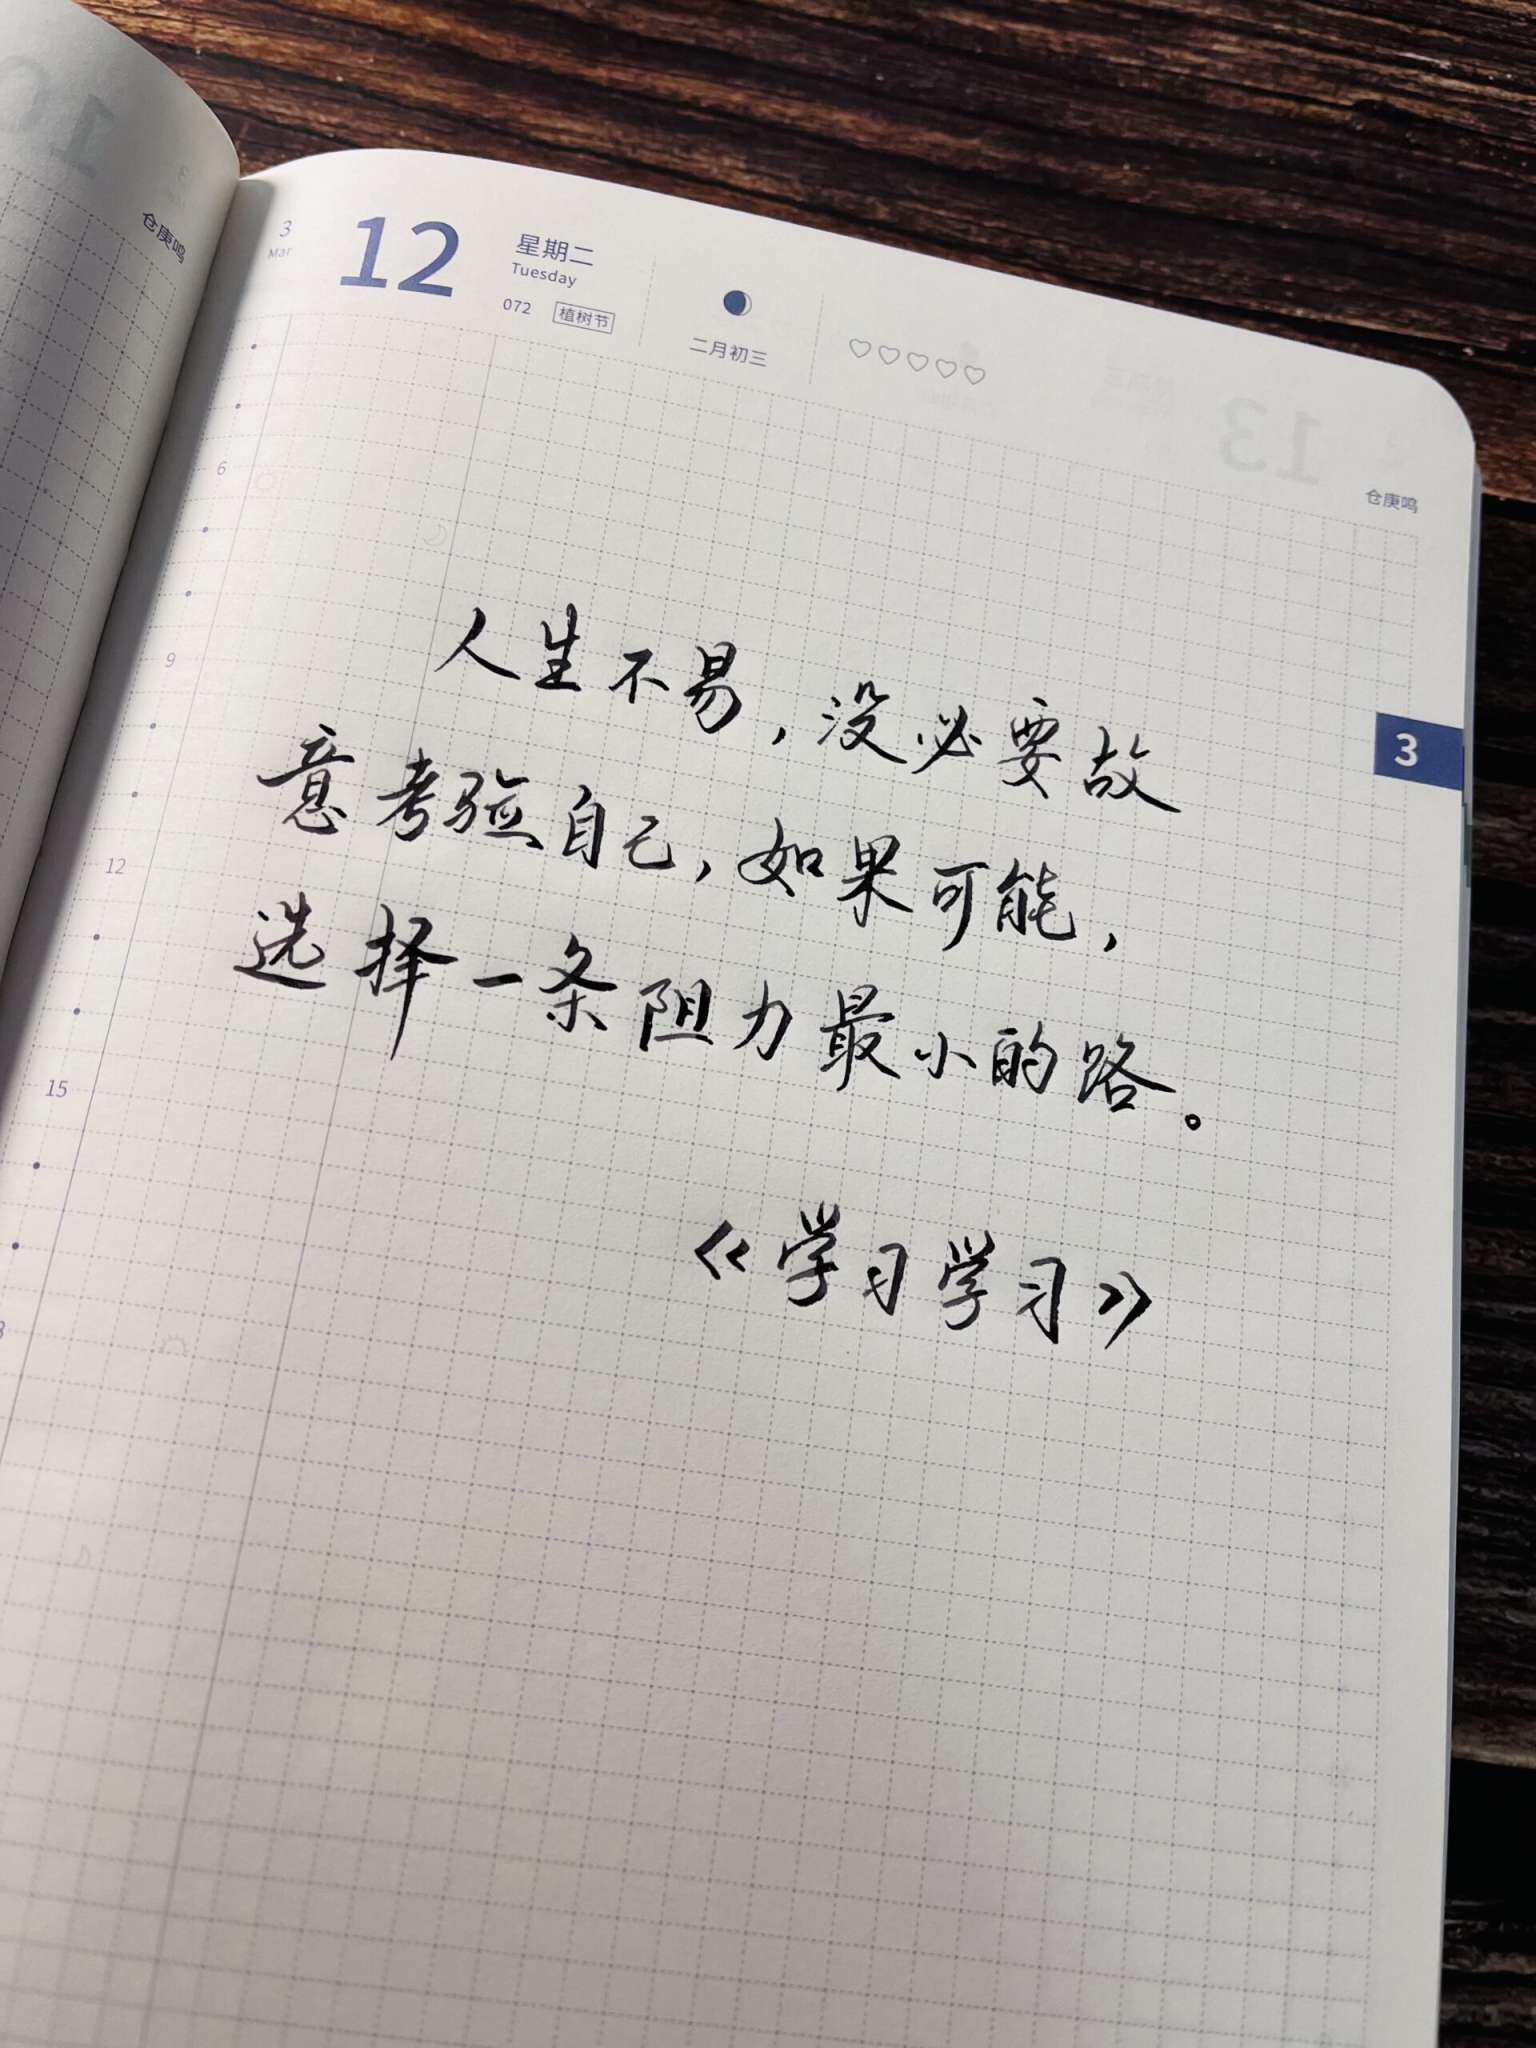 仓庚鸣
3
Mar
12
星期二
Tuesday
072 植树节
二月初三
13
仓庚鸣
6
9
12
15
3
人生不易，没必要故
意考验自己，如果可能，
选择一条阻力最小的路。
《学习学习》